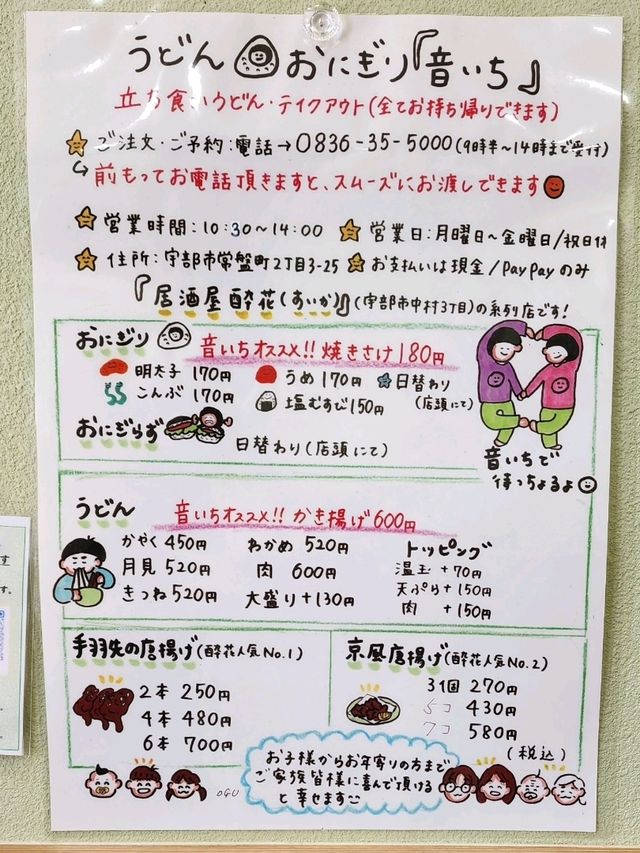 うどん おにぎり『音いち』
立ち食いうどん・テイクアウト(全てお持ち帰りできます)
ご注文・ご予約:電話→0836-35-5000(9時半~14時まで受付)
前もってお電話頂きますと、スムーズにお渡しできます
営業時間:10:30~14:00 営業日:月曜日~金曜日/祝日休
住所:宇部市常盤町2丁目3-25 お支払いは現金/PayPayのみ
『居酒屋酔花(すいか)』(宇部市中村3丁目)の系列店です!
おにぎり 音いちオススメ!!焼きさけ180円
明太子 170円 うめ170円 日替わり
こんぶ 170円 塩むすび150円 (店頭にて)
おにぎらず 日替わり(店頭にて)
音いちで
待っちょるよ
うどん 音いちオススメ!!かき揚げ600円
かやく450円 わかめ 520円 トッピング
月見 520円 肉 600円 温玉 +70円
きつね520円 大盛り+130円 天ぷら+150円
肉 +150円
手羽先の唐揚げ(酔花人気No.1)
2本 250円
4本 480円
6本 700円
京風唐揚げ(酔花人気No.2)
3個 270円
5コ 430円
7コ 580円
(税込)
お子様からお年寄りの方まで
ご家族皆様に喜んで頂ける
と幸せます
OGU